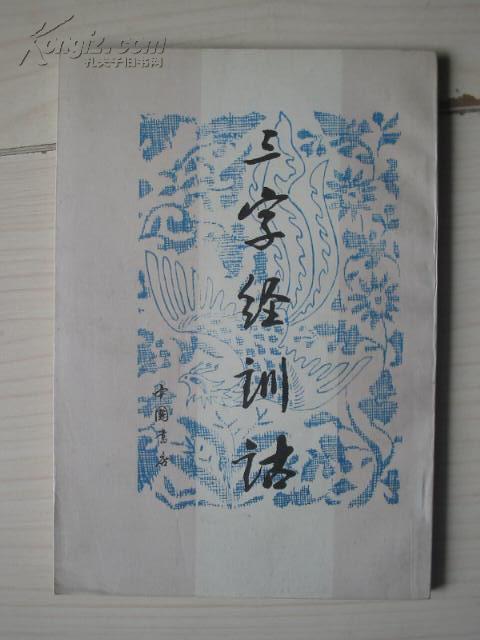 Kongfz.com
孔夫子旧书网
三字经训诂
中国书店